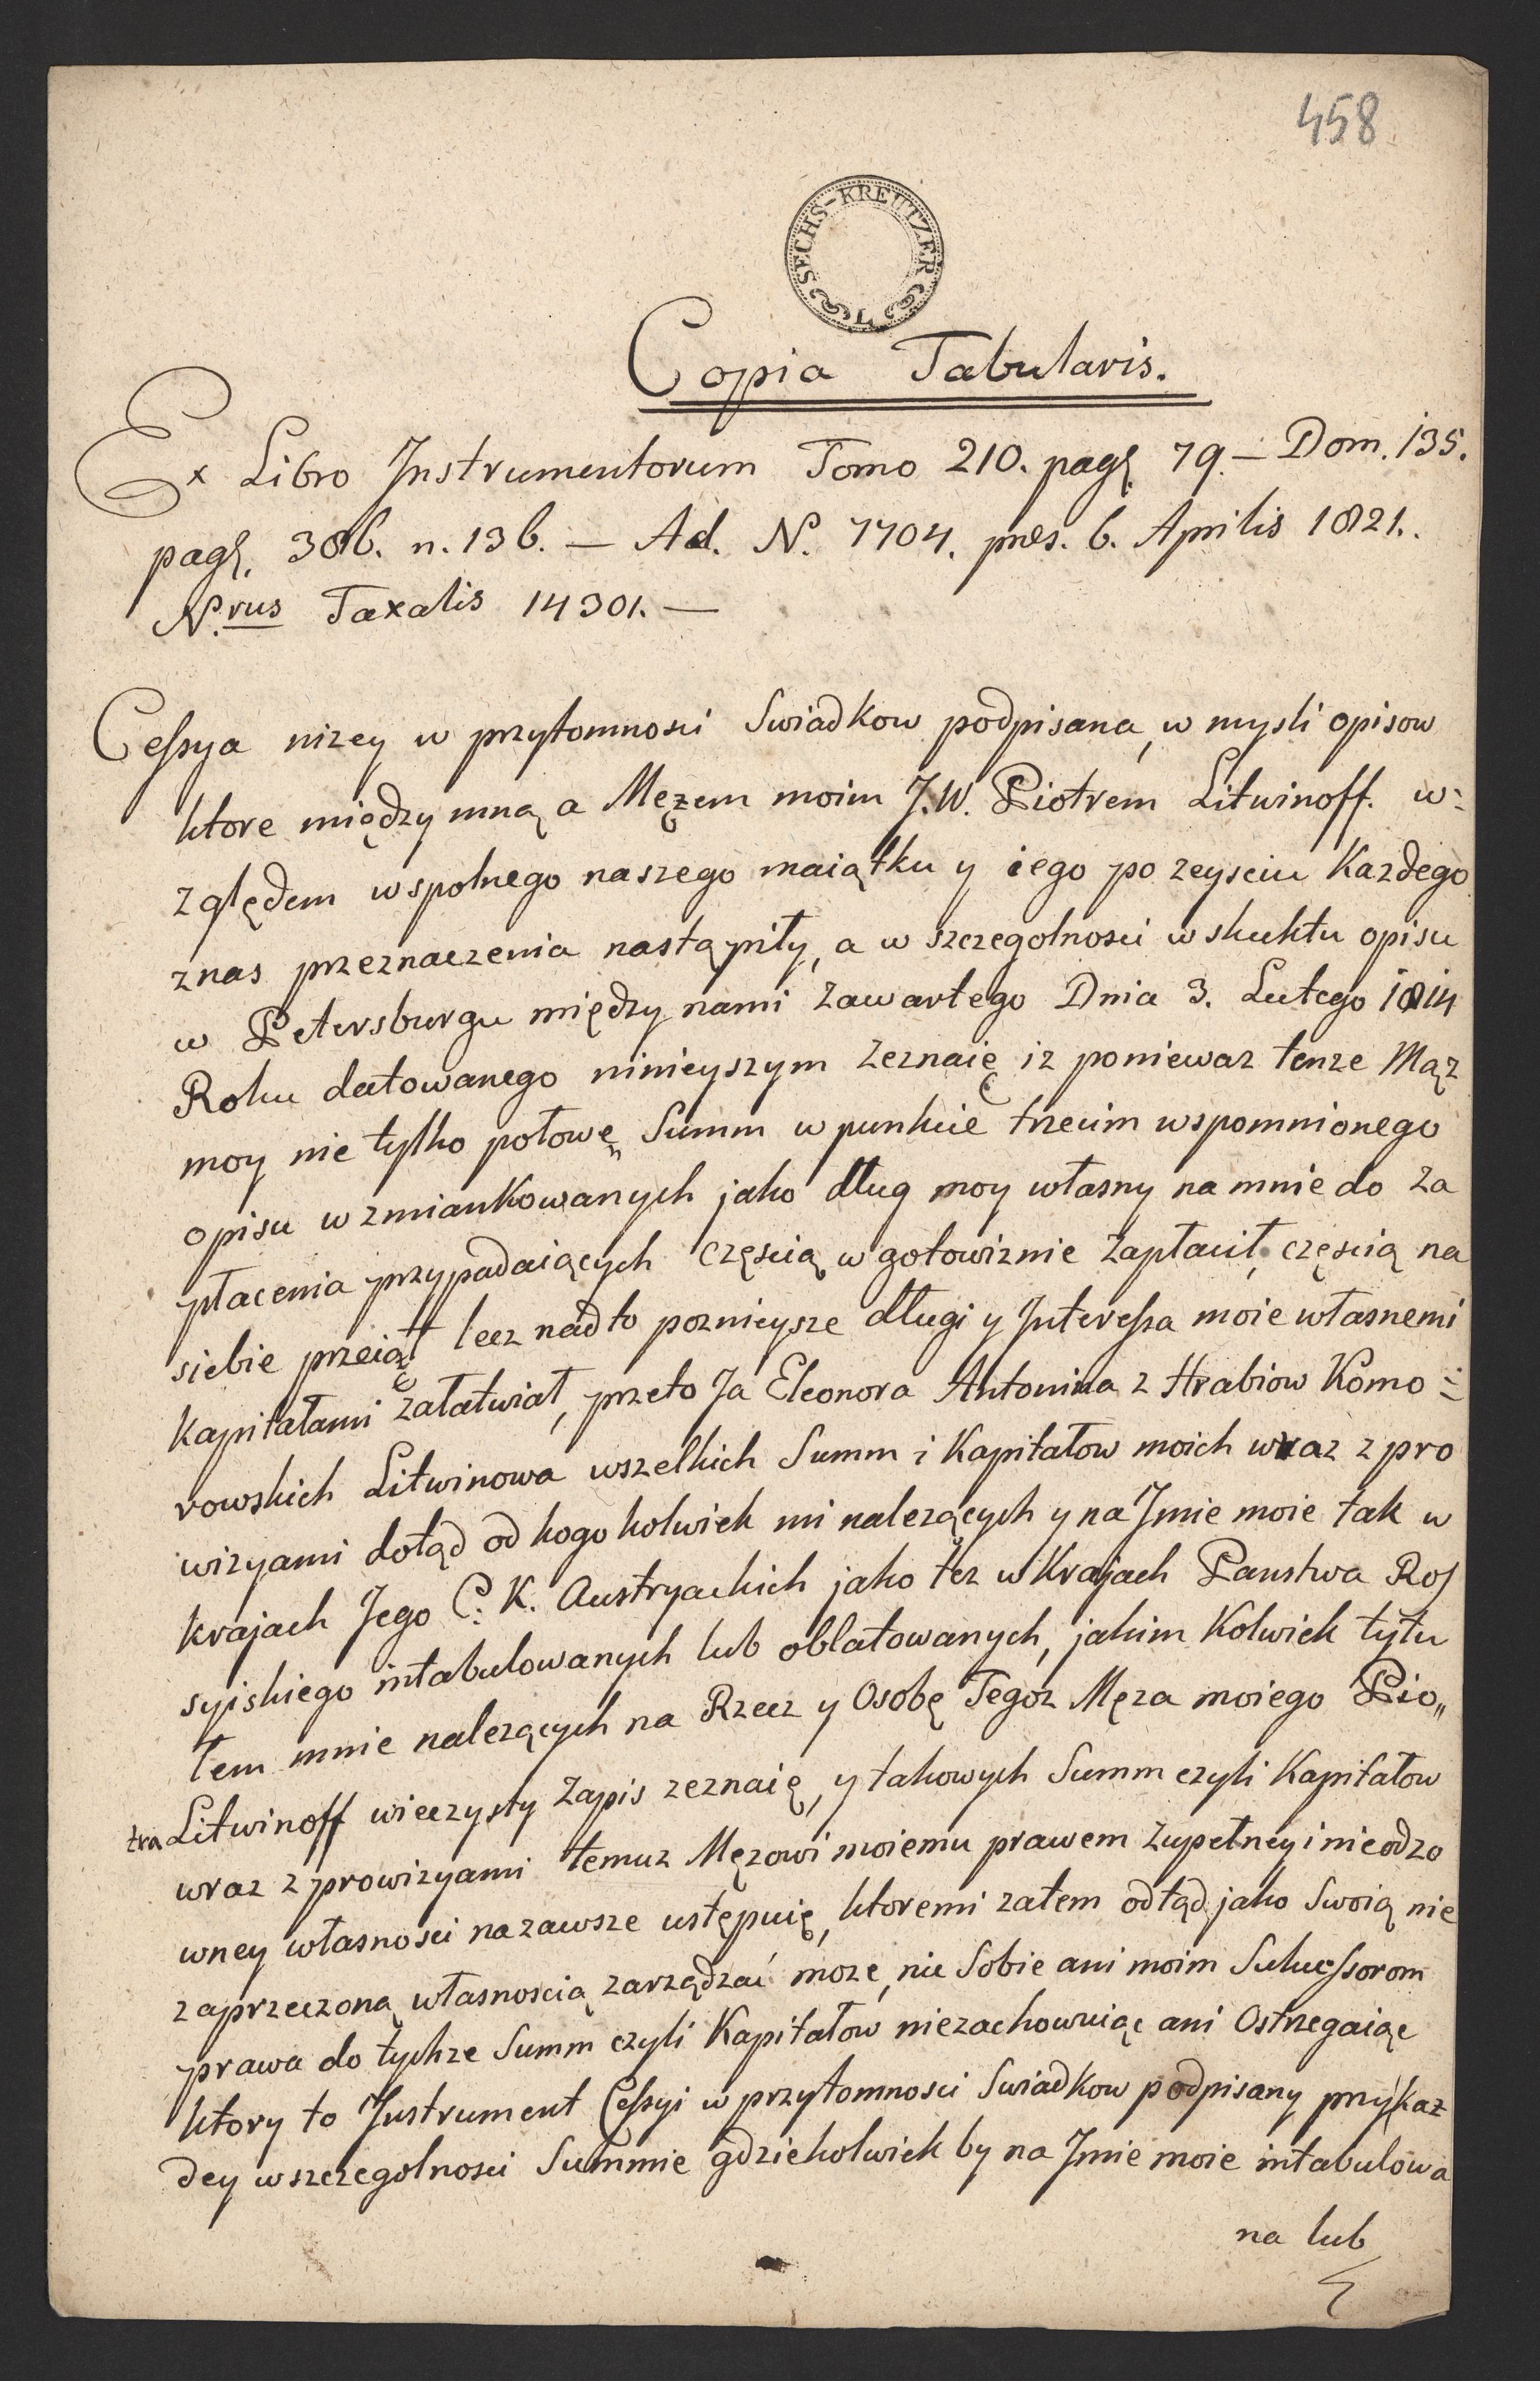 458
SECHS-KREUTZER
Copia Tabularis.
Ex Libro Instrumentorum Tomo 210. pag. 79. – Dom. 135.
pag. 386. n. 136. – Ad. N. 7704. pres. 6. Aprilis 1821.
N.rus Taxalis 14301. –
Cessya nizey w przytomnosci Swiadkow podpisana, w mysli opisow
ktore między mną a Mężem moim J.W. Piotrem Litwinoff. w=
zględem wspolnego naszego maiątku y iego po zeysciu Kazdego
znas przeznaczenia nastąpiły, a w szczegolnosci w skuktu opisu
w Petersburgu między nami zawartego Dnia 3. Lutego 1814
Roku datowanego ninieyszym zeznaię iz poniewaz tenze Mąz
moy nie tylko połowę Summ w punkcie trzecim wspomnionego
opisu wzmiankowanych jako dług moy własny na mnie do za
płacenia przypadaiących częscią w gotowiznie zapłacił, częscią na
siebie przeiął lecz nadto poznieysze długi y Interessa moie własnemi
Kapitałami załatwiał, przeto Ja Eleonora Antonina z Hrabiow Komo=
rowskich Litwinowa wszelkich Summ i Kapitałow moich wraz z pro
wizyami dotąd od kogokolwiek mi nalezących y na Imie moie tak w
krajach Jego C. K. Austryackich jako tez w Krajach Panstwa Ros
syiskiego intabulowanych lub oblatowanych, jakim Kolwiek tytu
łem mnie nalezących na Rzecz y Osobę Tegoz Męza moiego Pio„
tra Litwinoff wieczysty zapis zeznaię, y takowych Summ czyli Kapitałow
wraz z prowizyami temuz Męzowi moiemu prawem zupełney i nieodzo
wney własnosci nazawsze ustępuię, ktoremi zatem odtąd jako swoią nie
zaprzeczoną własnoscią zarządzać może, nic Sobie ani moim Sukcessorom
prawa do tychze Summ czyli Kapitałow niezachowuiąc ani Ostrzegaiąc
ktory to Instrument Cessyi w przytomnosci Swiadkow podpisany przy kaz
dey wszczegolnosci Summie gdziekolwiek by na Imie moie intabulowa
na lub